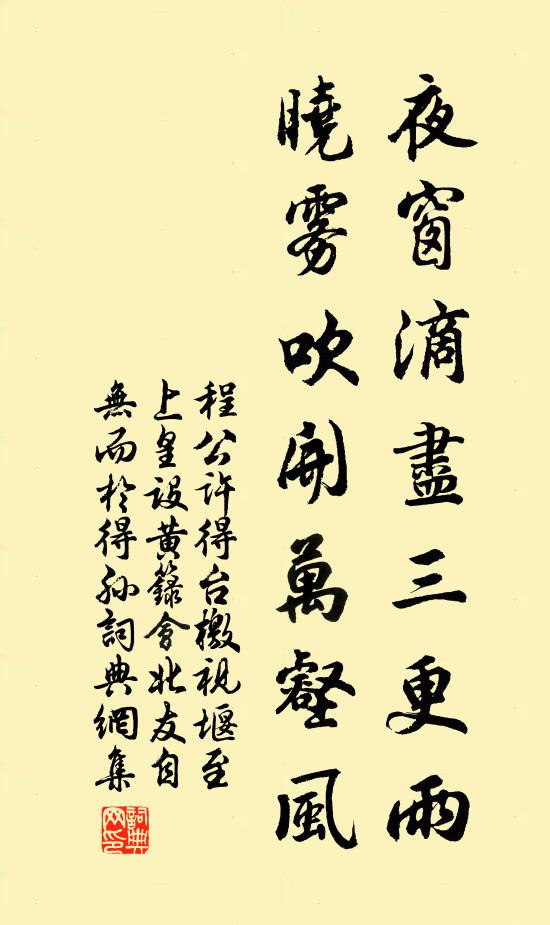 夜窗滴盡三更雨
曉霧吹開萬壑風
程公許得台檄視堰至
上皇設黄籙會北友自
無而於得孫詞典網集
詞典網印